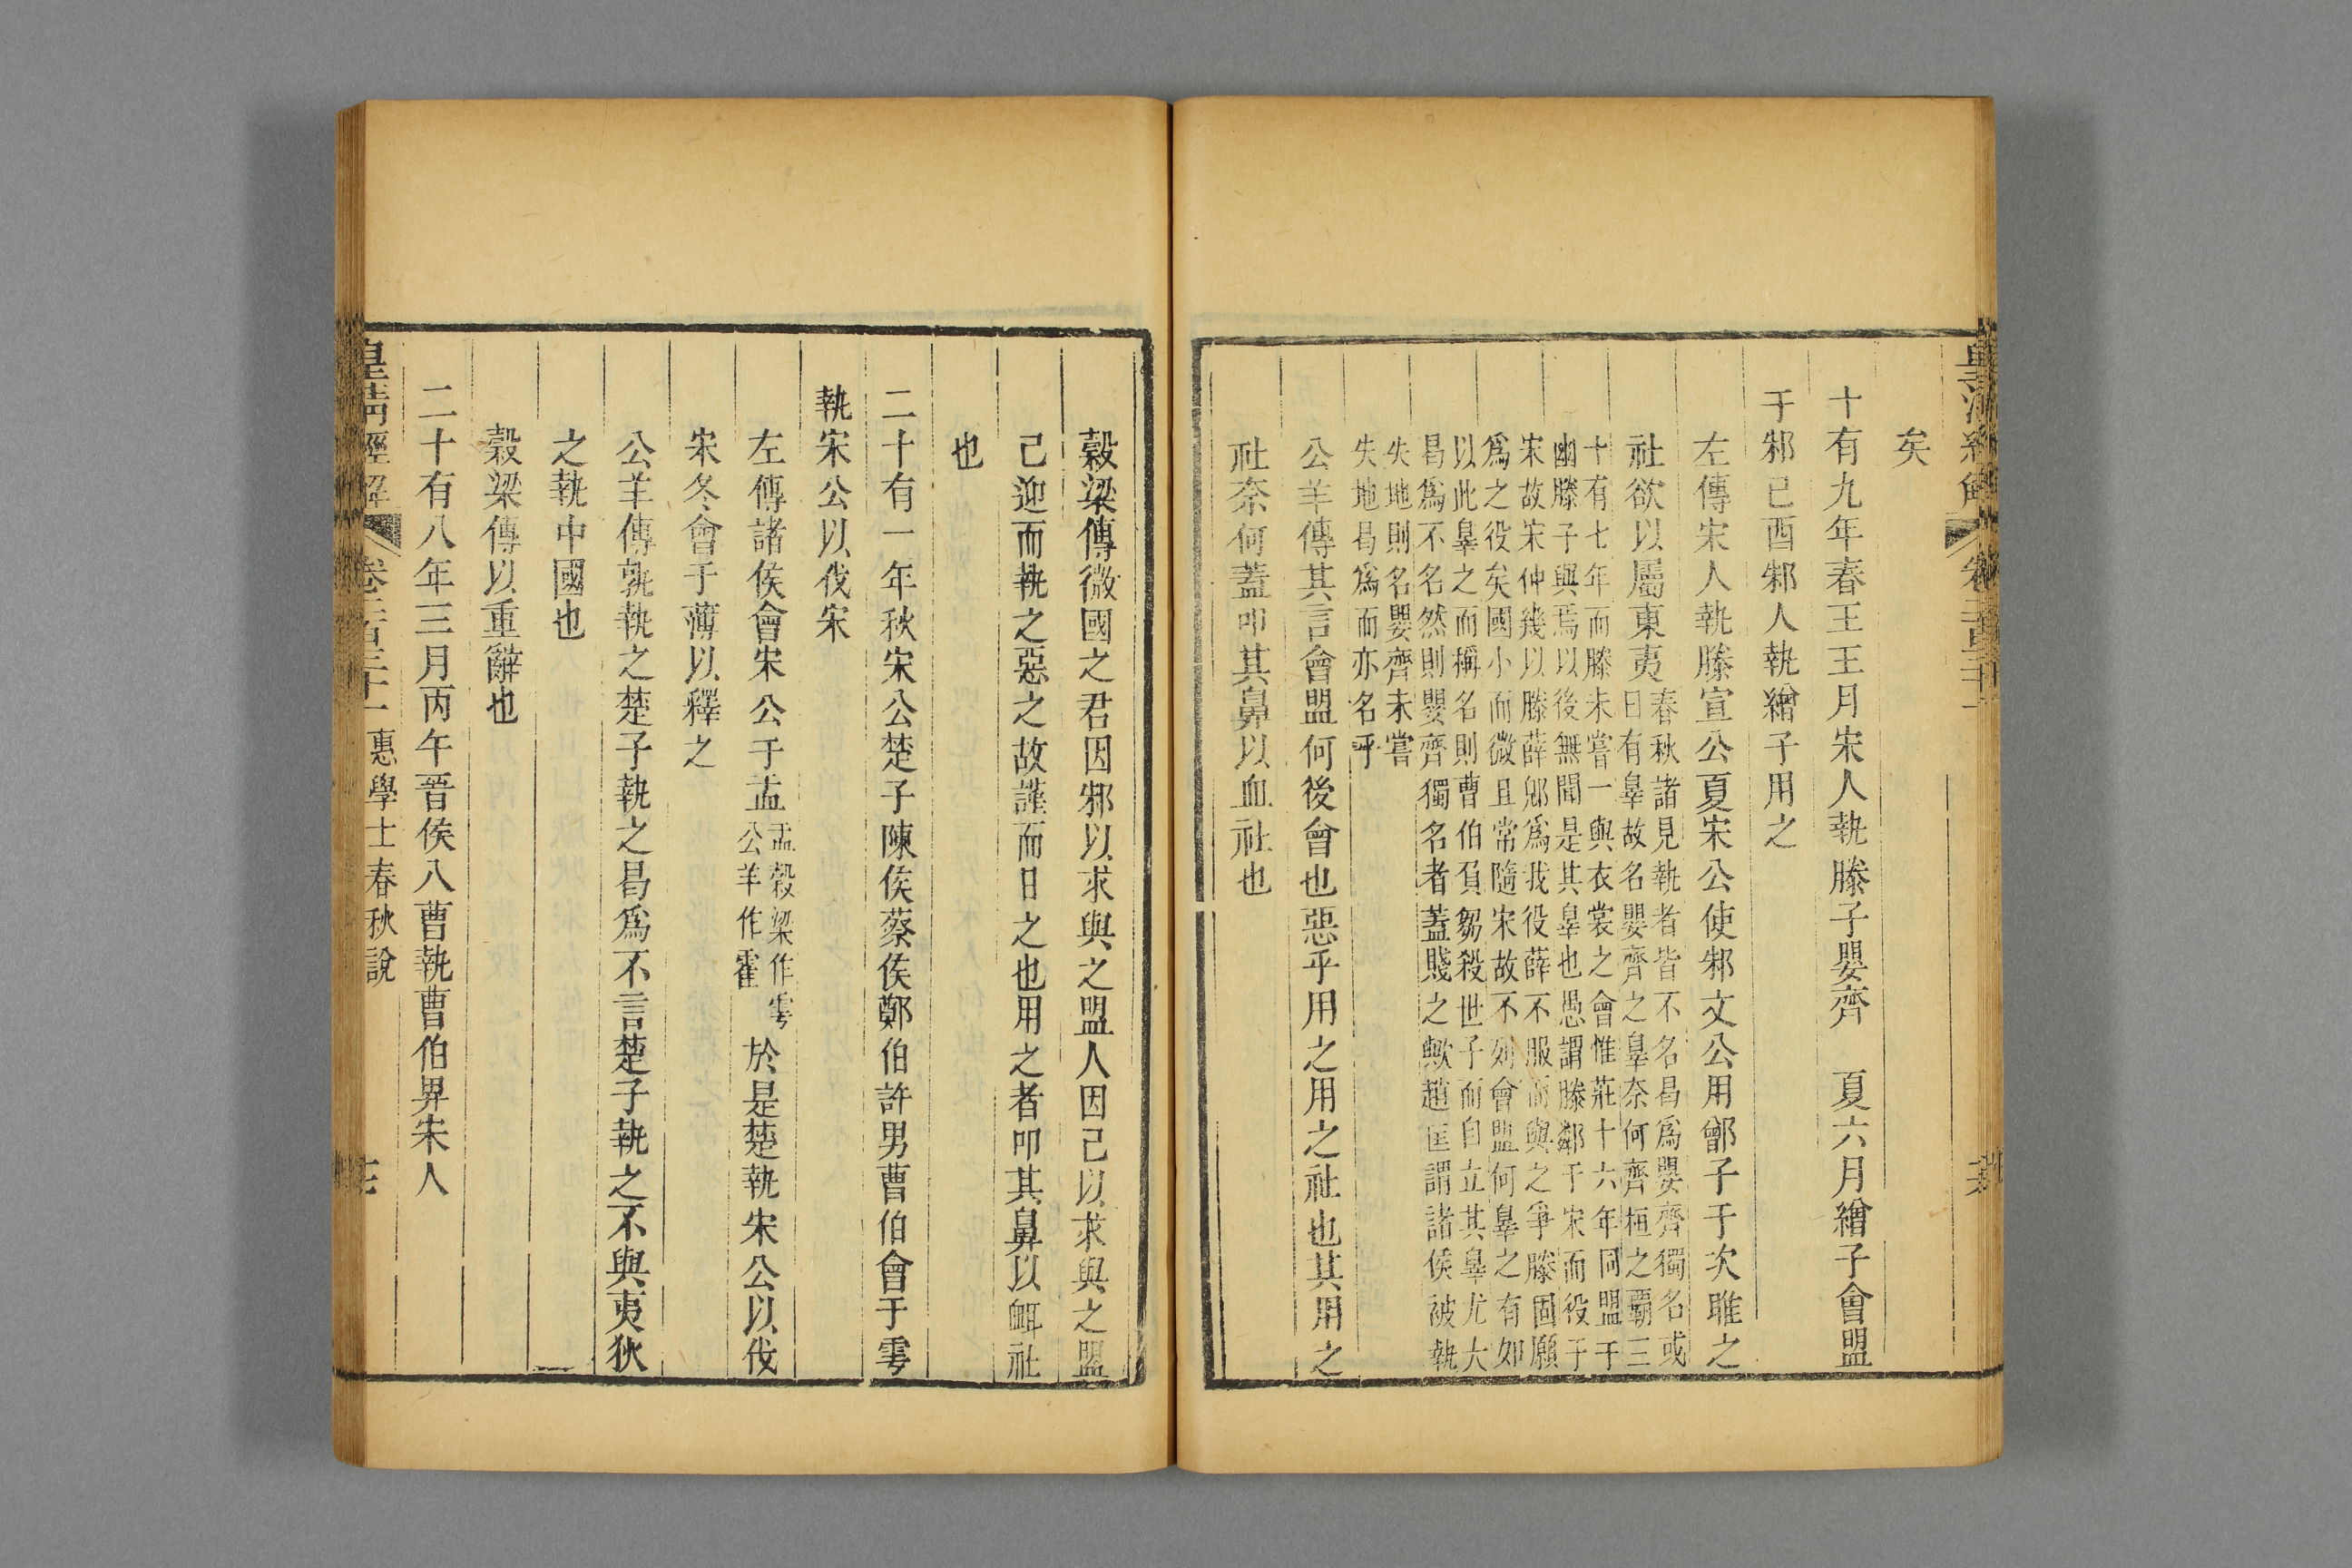 矣
十有九年春王王月宋人執滕子嬰齊　夏六月繒子會盟
于邾已酉邾人執繒子用之
左傳宋人執滕宣公夏宋公使邾文公用鄫子于次睢之
社欲以屬東夷
春秋諸見執者皆不名曷爲嬰齊獨名或
曰有辠故名嬰齊之辠奈何齊桓之霸三
十有七年而滕未嘗一與衣裳之會惟莊十六年同盟于
幽滕子與焉以後無聞是其辠也愚謂滕鄰于宋而役于
宋故宋仲幾以滕薛郳爲我役薛不服而與之爭滕固願
爲之役矣國小而微且常隨宋故不列會盟何辠之有如
以此辠之而稱名則曹伯負芻殺世子而自立其辠尤大
曷爲不名然則嬰齊獨名者蓋賤之歟趙匡謂諸侯被執
失地則名嬰齊未嘗
失地曷爲而亦名乎
公羊傳其言會盟何後會也惡乎用之用之社也其用之
社奈何蓋叩其鼻以血社也
穀梁傳微國之君因邾以求與之盟人因己以求與之盟
己迎而執之惡之故謹而日之也用之者叩其鼻以衈社
也
二十有一年秋宋公楚子陳侯蔡侯鄭伯許男曹伯會于雩
執宋公以伐宋
左傳諸侯會宋公于盂
盂穀梁作雩
公羊作霍
於是楚執宋公以伐
宋冬會于薄以釋之
公羊傳孰執之楚子執之曷爲不言楚子執之不與夷狄
之執中國也
穀梁傳以重辭也
二十有八年三月丙午晉侯入曹執曹伯畀宋人
皇清經解　卷二百三十一惠學士春秋說